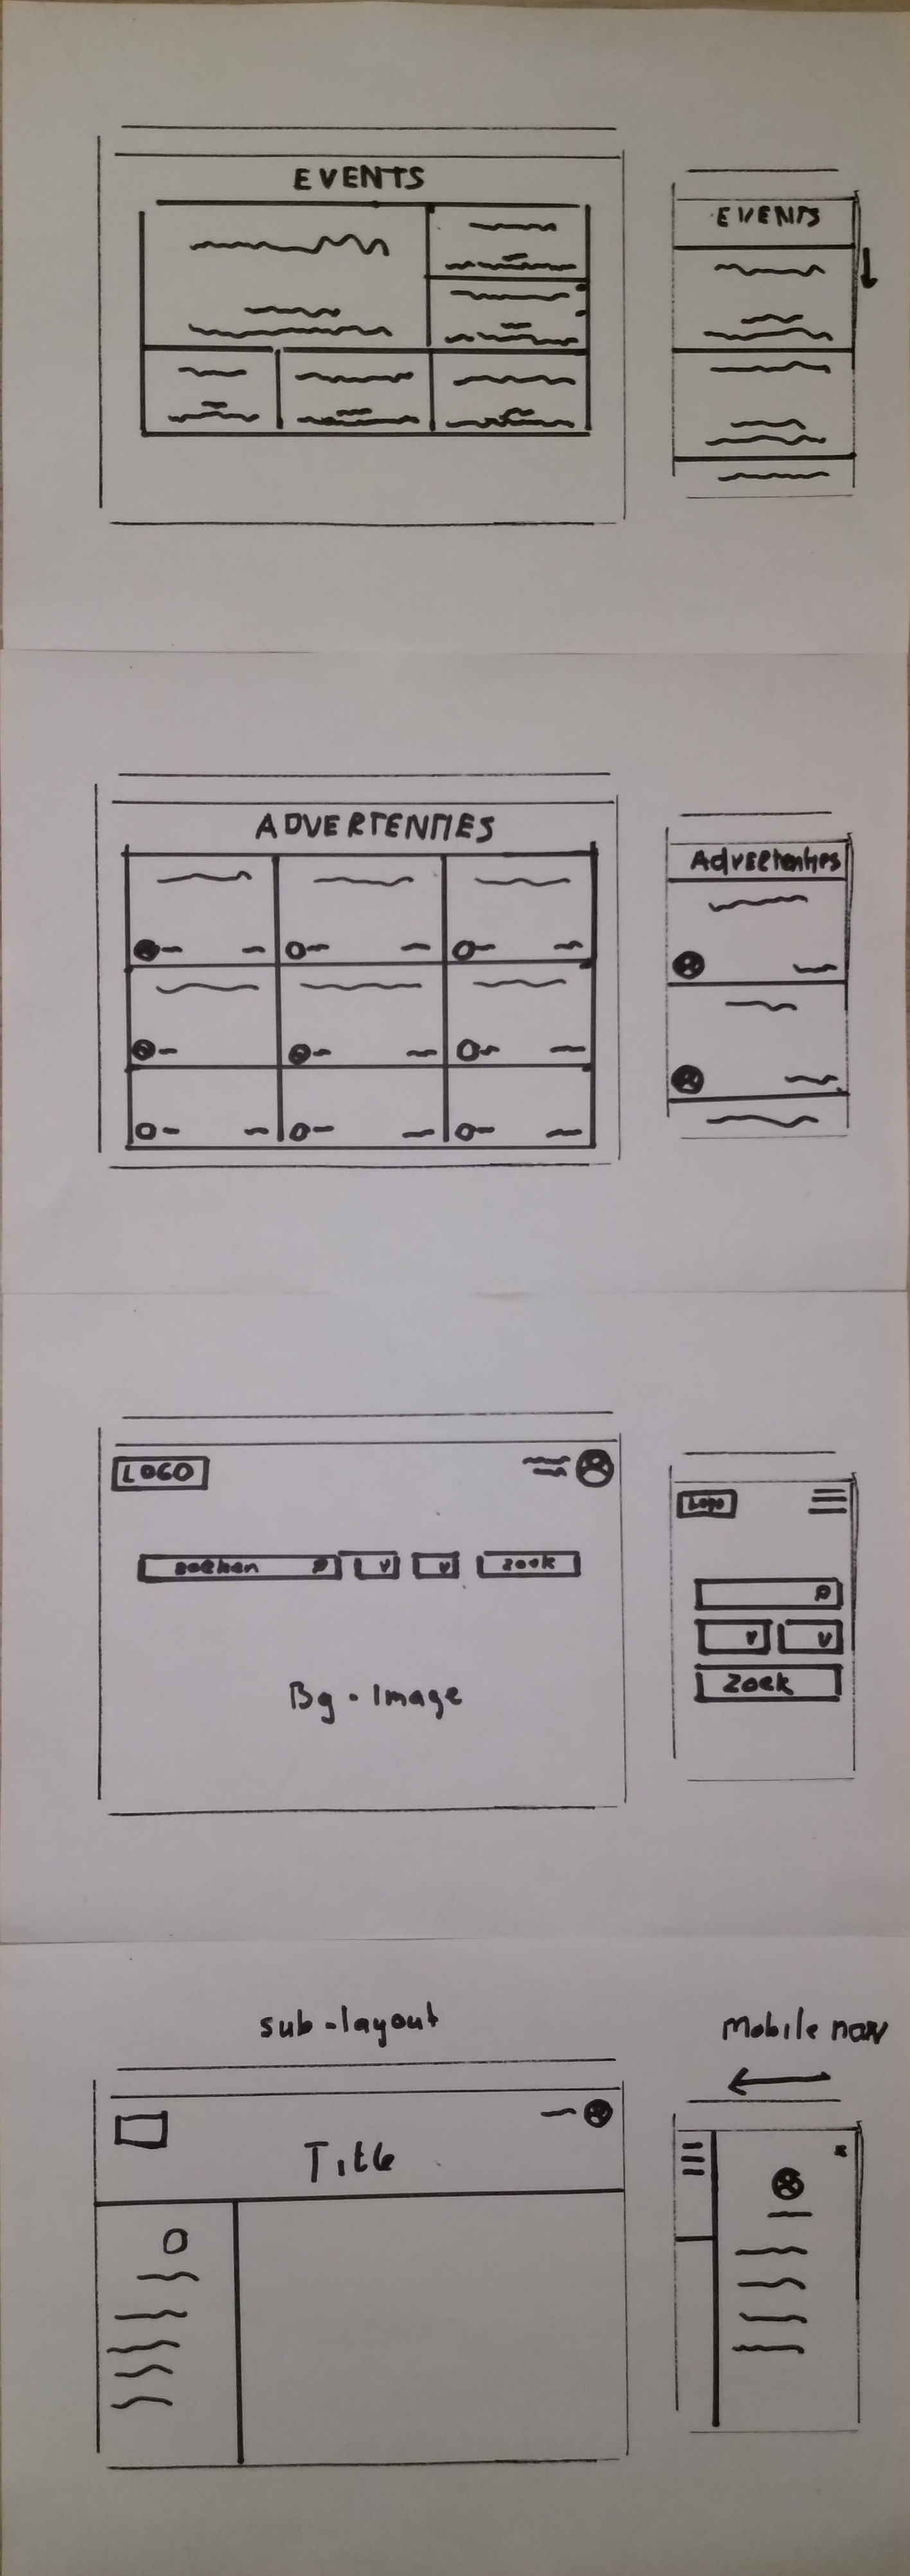 EVENTS
EVENTS
ADVERTENTIES
Advertenties
LOGO
zoeken
zoek
Bg-Image
Logo
Zoek
sub-layout
Mobile nav
Title